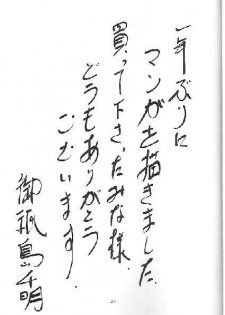 一年ぶりに
マンガを描きました
買って下さったみな様、
どうもありがとう
ございます。
御祇島千明